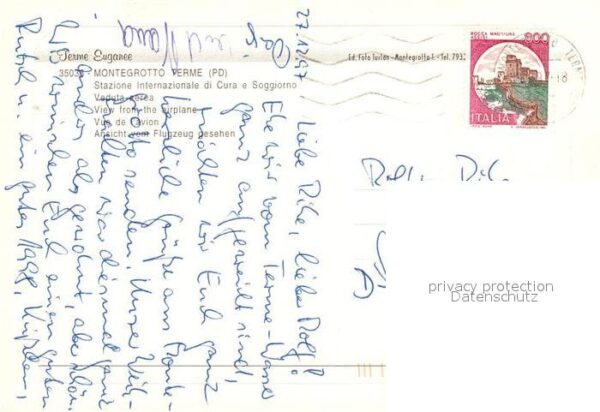 Terme Euganee
35036 MONTEGROTTO TERME (PD)
Stazione Internazionale di Cura e Soggiorno
Veduta aerea
View from the airplane
Vue de l'avion
Ansicht vom Flugzeug gesehen
Ed. Foto Turlon - Montegrotto T. - Tel. 7932
ROCCA MAGGIORE
ASSISI
800
ITALIA
27.12.97
Liebe Rike, lieber Rolf!
Ehe wir vom Terme-Wasser
ganz aufgeweilt sind,
möchten wir Euch ganz
herzliche Grüße aus Monte-
grotto senden. Unser Weih-
nachten war diesmal ganz
anders als gewohnt, aber schön.
Wir wünschen Euch einen guten
Rutsch u. ein gutes 1998.
und
privacy protection
Datenschutz